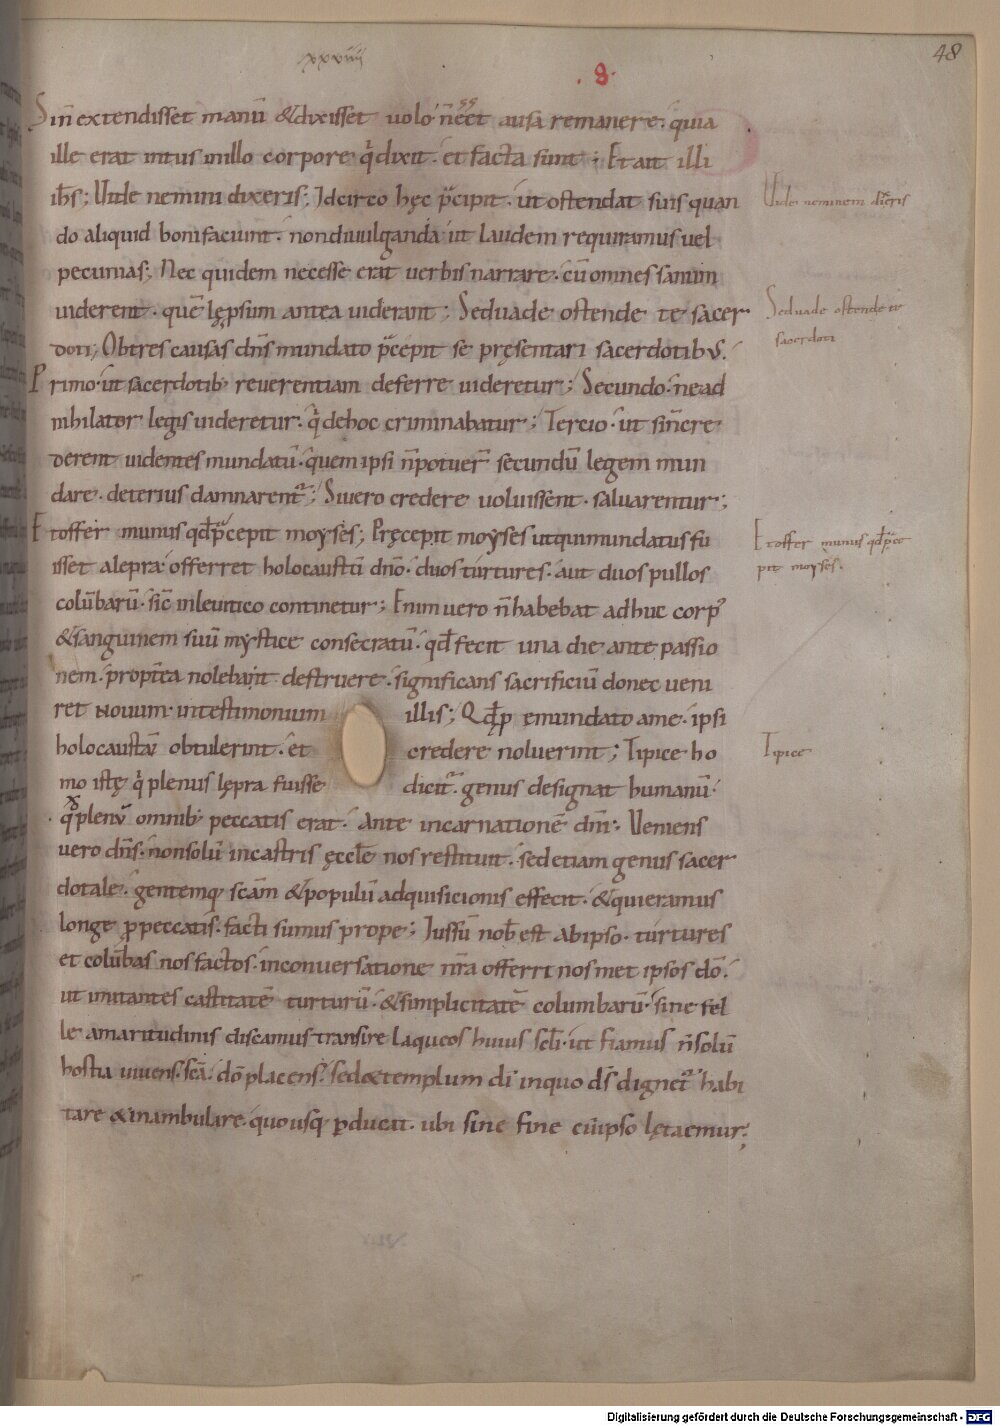 xxxviiii
.8.
48
Sin̄ extendisset manū &dixisset uolo n̄ eēt ausa remanere. quia
ille erat intus inillo corpore q̇ dixit. et facta sunt; Et ait illi
ih̄s; Uide nemini dixeris; Idcirco hęc p̄cipit. ut ostendat suis quan
do aliquid boni faciunt. nondiuulganda ut laudem requiramus uel
pecunias; Nec quidem necesse erat uerbis narrare. cū omnes sanum
uiderent. quē lęprsum antea uiderant; Seduade ostende te sacer
doti; Obtres causas dn̄s mundato p̄cepit se pręsentari sacerdotibus.
Primo. ut sacerdotib; reuerentiam deferre uideretur; Secundo. ne ad
nihilator legis uideretur. q̇ dehoc criminabatur; Tercio. ut sin̄ cre
derent uidentes mundatū. quem ipsi n̄ potuer̄ secundū legem mun
dare. deterius damnarent̄; Siuero credere uoluissent. saluarentur;
Et offer munus qd̄ p̄cepit moyses; Pręcepit moyses utqui mundatus fu
isset alepra. offerret holocaustū dn̄o. duos turtures. aut duos pullos
colūbarū. sic̄ inleuitico continetur; Enim uero n̄ habebat adhuc corp̄
&sanguinem suū mystice consecratū. qd̄ fecit una die ante passio
nem. propt̄ea nolebant destruere. significans sacrificiū donec ueni
ret nouum. intestimonium illis; Qd̄ p̄ emundato ame. ipsi
holocausta obtulerint. et credere noluerint; Tipice ho
mo istę q̇ plenus lępra fuisse dicit̄. genus designat humanū.
q̇ plenus omnib; peccatis erat. Ante incarnationē dn̄i; Ueniens
uero dn̄s. nonsolū incastris ęccl̄e nos restituit. sed etiam genus sacer
dotale. gentemq; scām &populū adquisicionis effecit. &qui eramus
longe p̄ peccatis. facti sumus prope; Iussū nob̄ est abipso. turtures
et colūbas nos factos. inconuersatione nr̄a offerri nosmet ipsos dō.
ut imitantes castitatē turturū. &simplicitatē columbarū. sine fel
le amaritudinis discamus transire laqueos huius scl̄i. ut fiamus n̄ solū
hostia uiuens. scā. dō placens. sed& templum dī inquo ds̄ dignet̄ habi
tare &inambulare. quousq; p̄ducat. ubi sine fine cū ipso lętaemur;
Uide neminem dix̄eris
Seduade ostende te
sacerdoti
Et offer munus qd̄ p̄ce
pit moyses.
Tipice
Digitalisierung gefördert durch die Deutsche Forschungsgemeinschaft - DFG